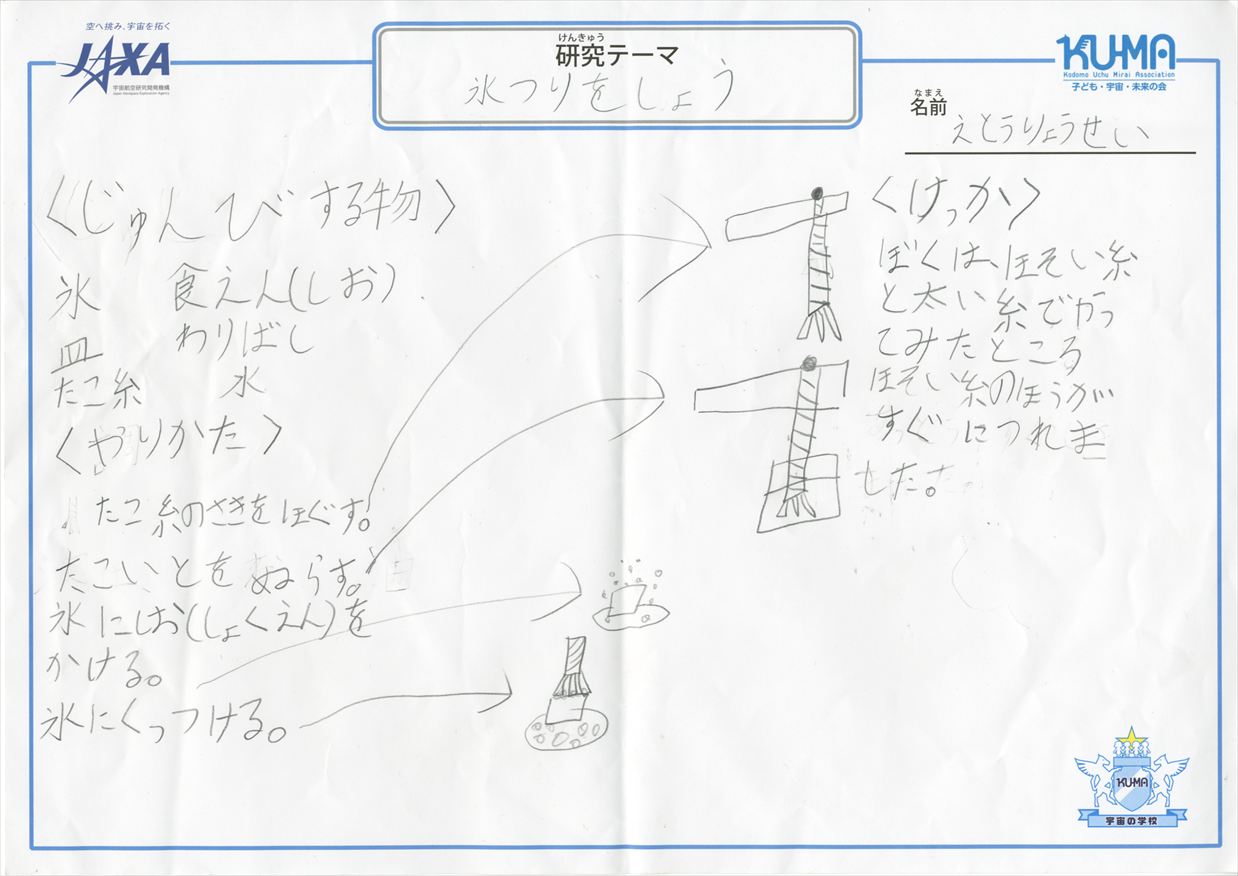 空へ挑み、宇宙を拓く
JAXA
宇宙航空研究開発機構
Japan Aerospace Exploration Agency
けんきゅう
研究テーマ
氷つりをしよう
KU-MA
Kodomo Uchu Mirai Association
子ども・宇宙・未来の会
なまえ
名前
えとうりょうせい
〈じゅんびする物〉
氷 食えん(しお)
皿 わりばし
たこ糸 水
〈やりかた〉
たこ糸のさきをほぐす。
たこいとをぬらす。
氷にしお(しょくえん)を
かける。
氷にくっつける。
〈けっか〉
ぼくは、ほそい糸
と太い糸でやっ
てみたところ
ほそい糸のほうが
すぐにつれま
した。
KU-MA
宇宙の学校